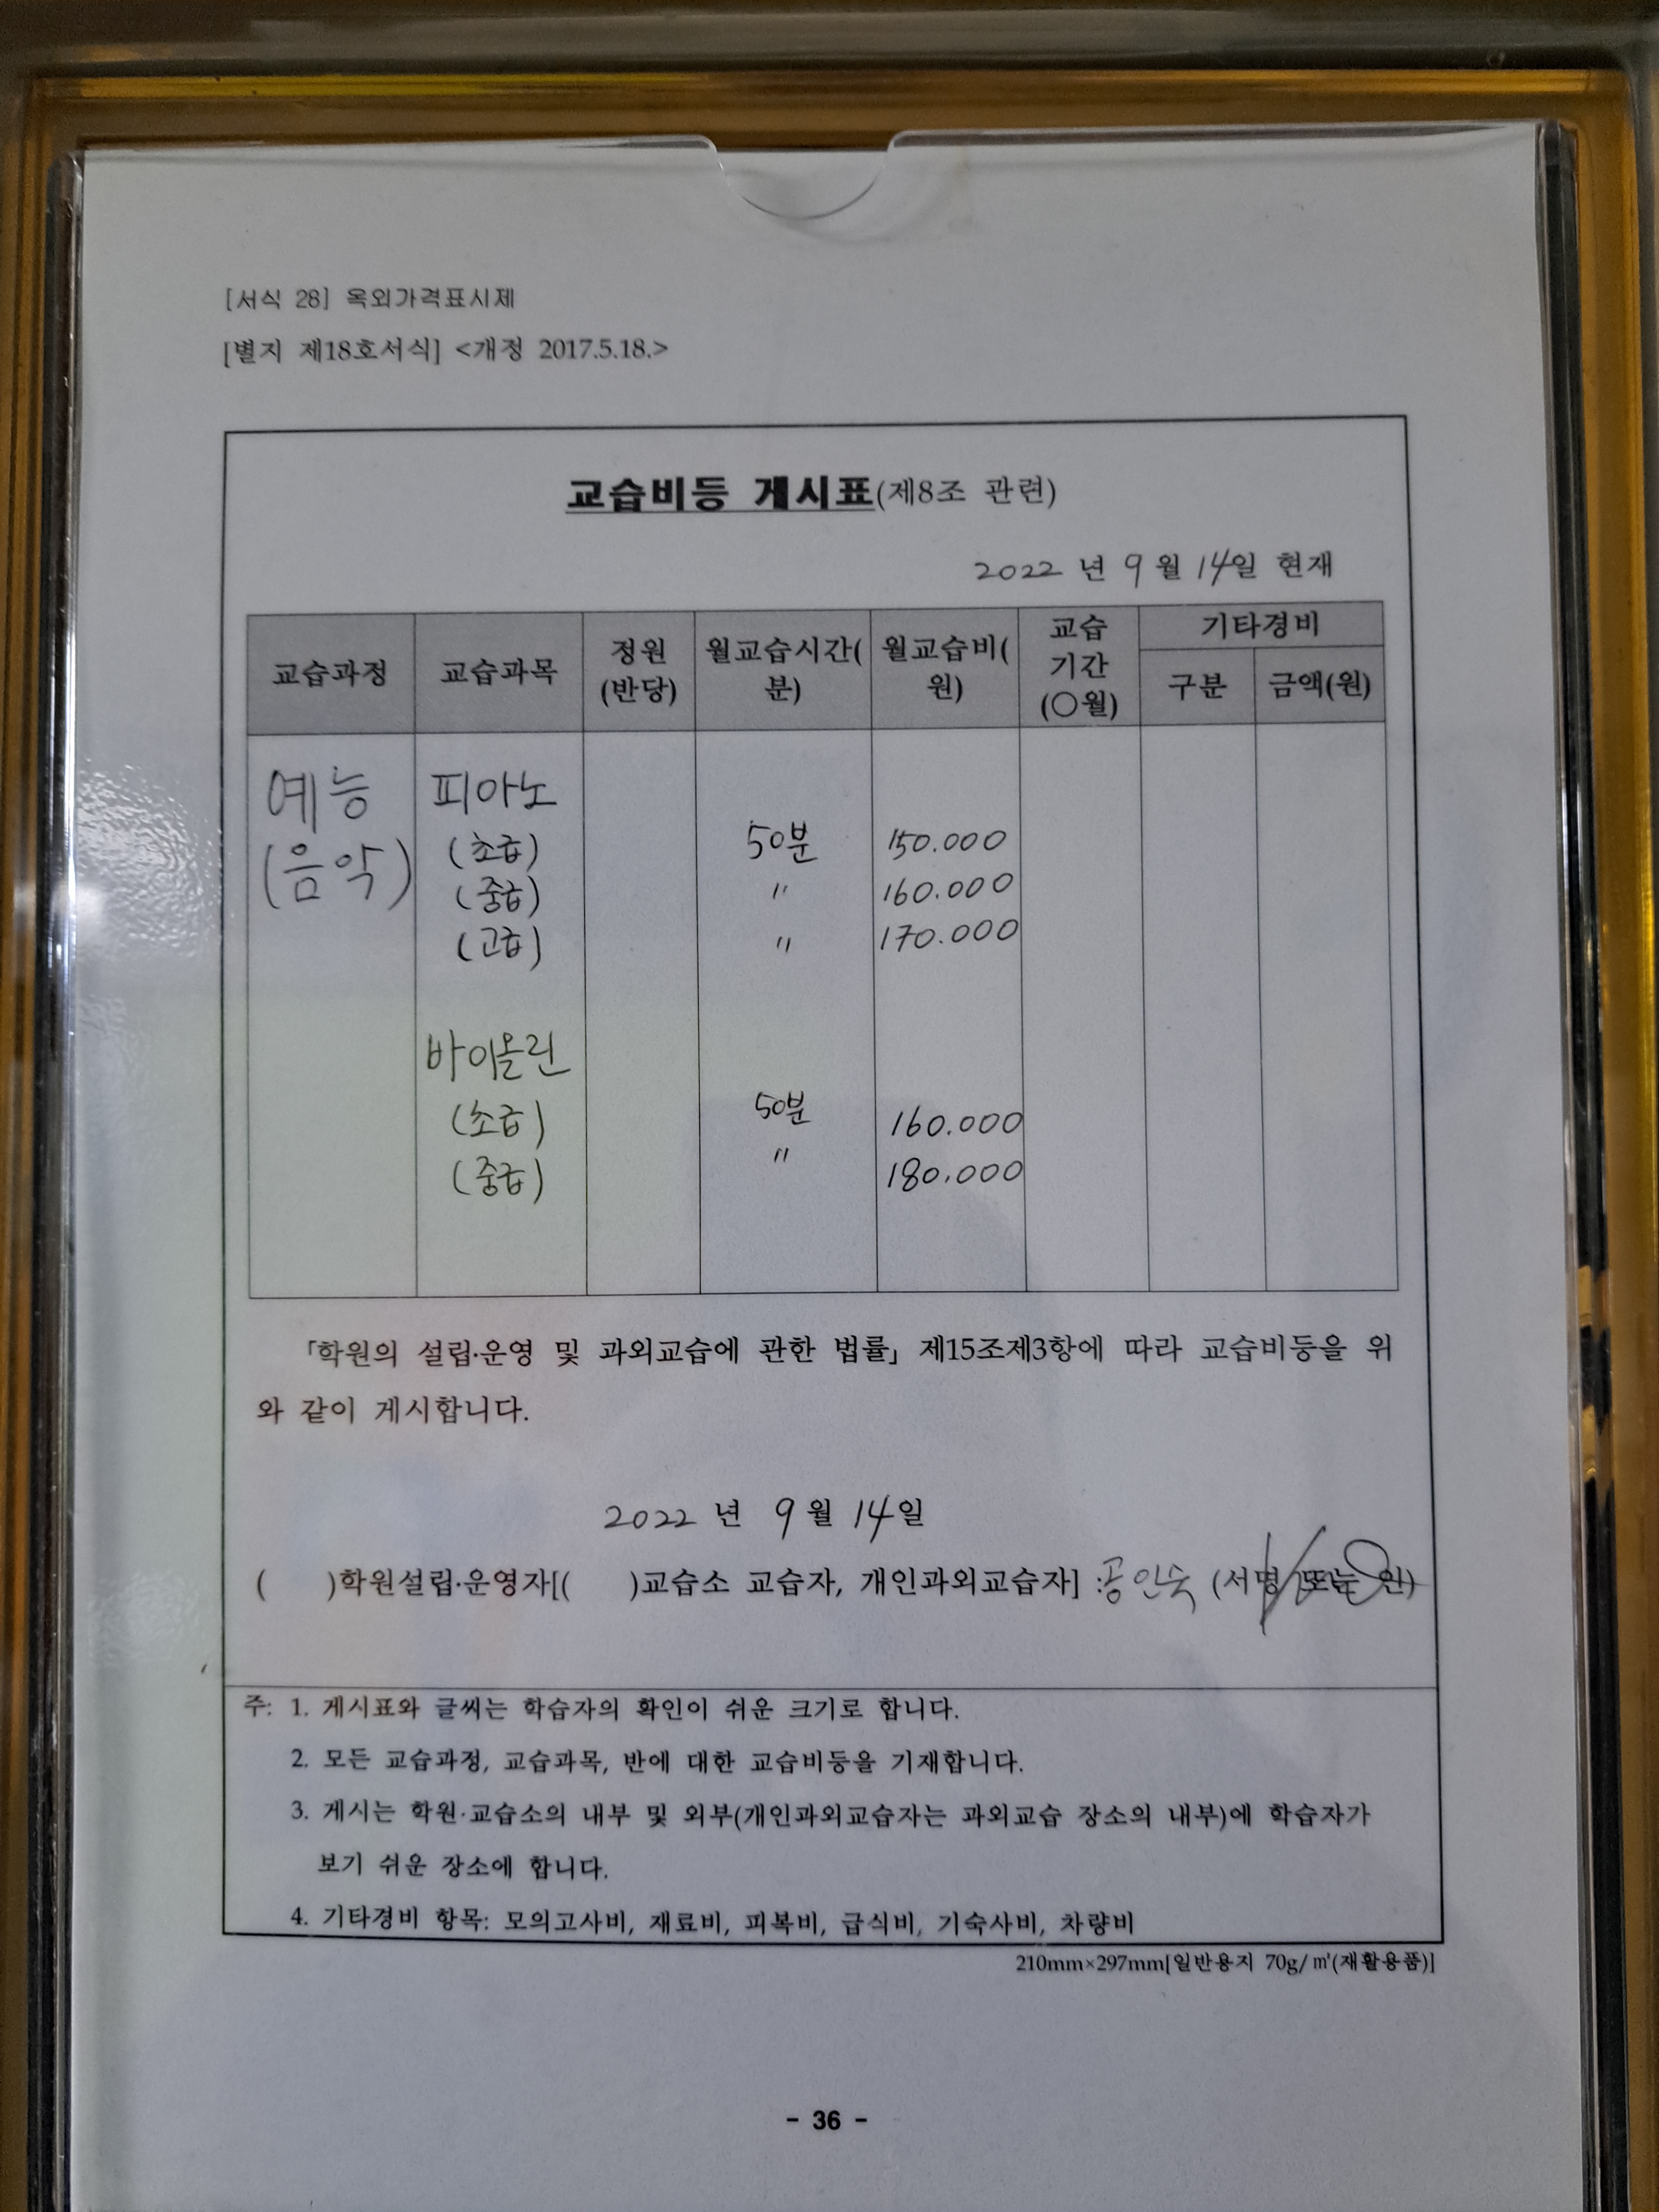 [서식 28] 옥외가격표시제
[별지 제18호서식] <개정 2017.5.18.>
교습비등 게시표(제8조 관련)
2022 년 9 월 14일 현재
교습과정 교습과목 정원(반당) 월교습시간(분) 월교습비(원) 교습기간(○월) 기타경비 구분 금액(원)
예능 피아노
(음악) (초급) 50분 150.000
(중급) 〃 160.000
(고급) 〃 170.000
바이올린
(초급) 50분 160.000
(중급) 〃 180.000
「학원의 설립·운영 및 과외교습에 관한 법률」 제15조제3항에 따라 교습비등을 위
와 같이 게시합니다.
2022 년 9 월 14일
( )학원설립·운영자[( )교습소 교습자, 개인과외교습자] : 공인숙 (서명 또는 인)
주: 1. 게시표와 글씨는 학습자의 확인이 쉬운 크기로 합니다.
2. 모든 교습과정, 교습과목, 반에 대한 교습비등을 기재합니다.
3. 게시는 학원·교습소의 내부 및 외부(개인과외교습자는 과외교습 장소의 내부)에 학습자가
보기 쉬운 장소에 합니다.
4. 기타경비 항목: 모의고사비, 재료비, 피복비, 급식비, 기숙사비, 차량비
210mm×297mm[일반용지 70g/㎡(재활용품)]
- 36 -